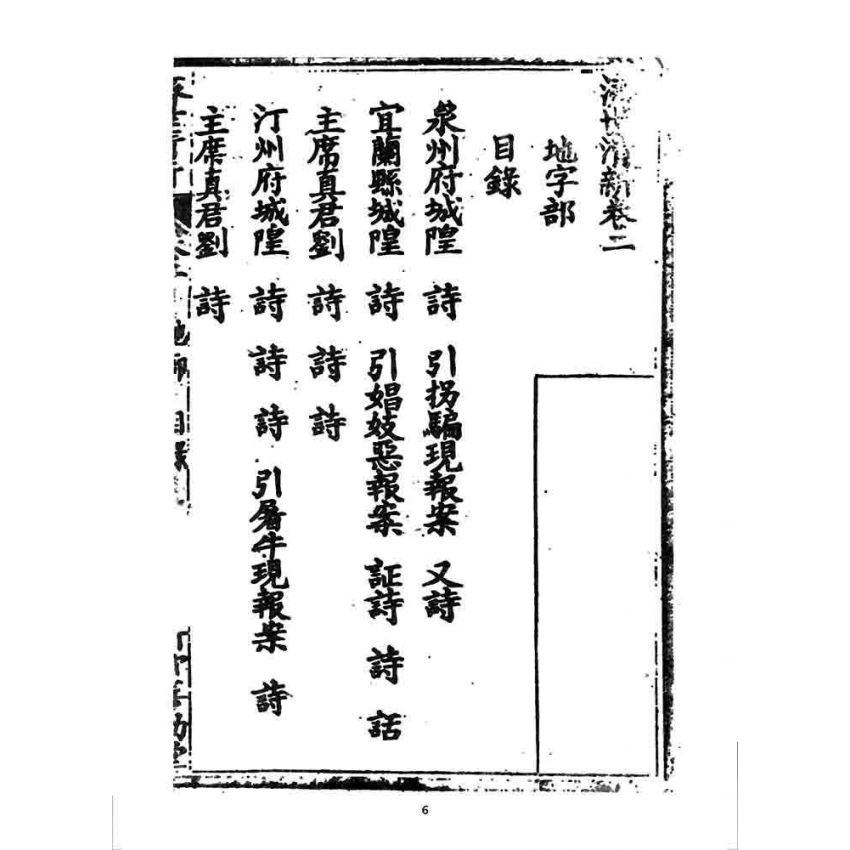 卷二
地字部
目錄
泉州府城隍 詩 引拐騙現報案 又詩
宜蘭縣城隍 詩 引娼妓惡報案 証詩 詩 話
主席真君劉 詩 詩 詩
汀州府城隍 詩 詩 詩 引屠牛現報案 詩
主席真君劉 詩
目錄
6